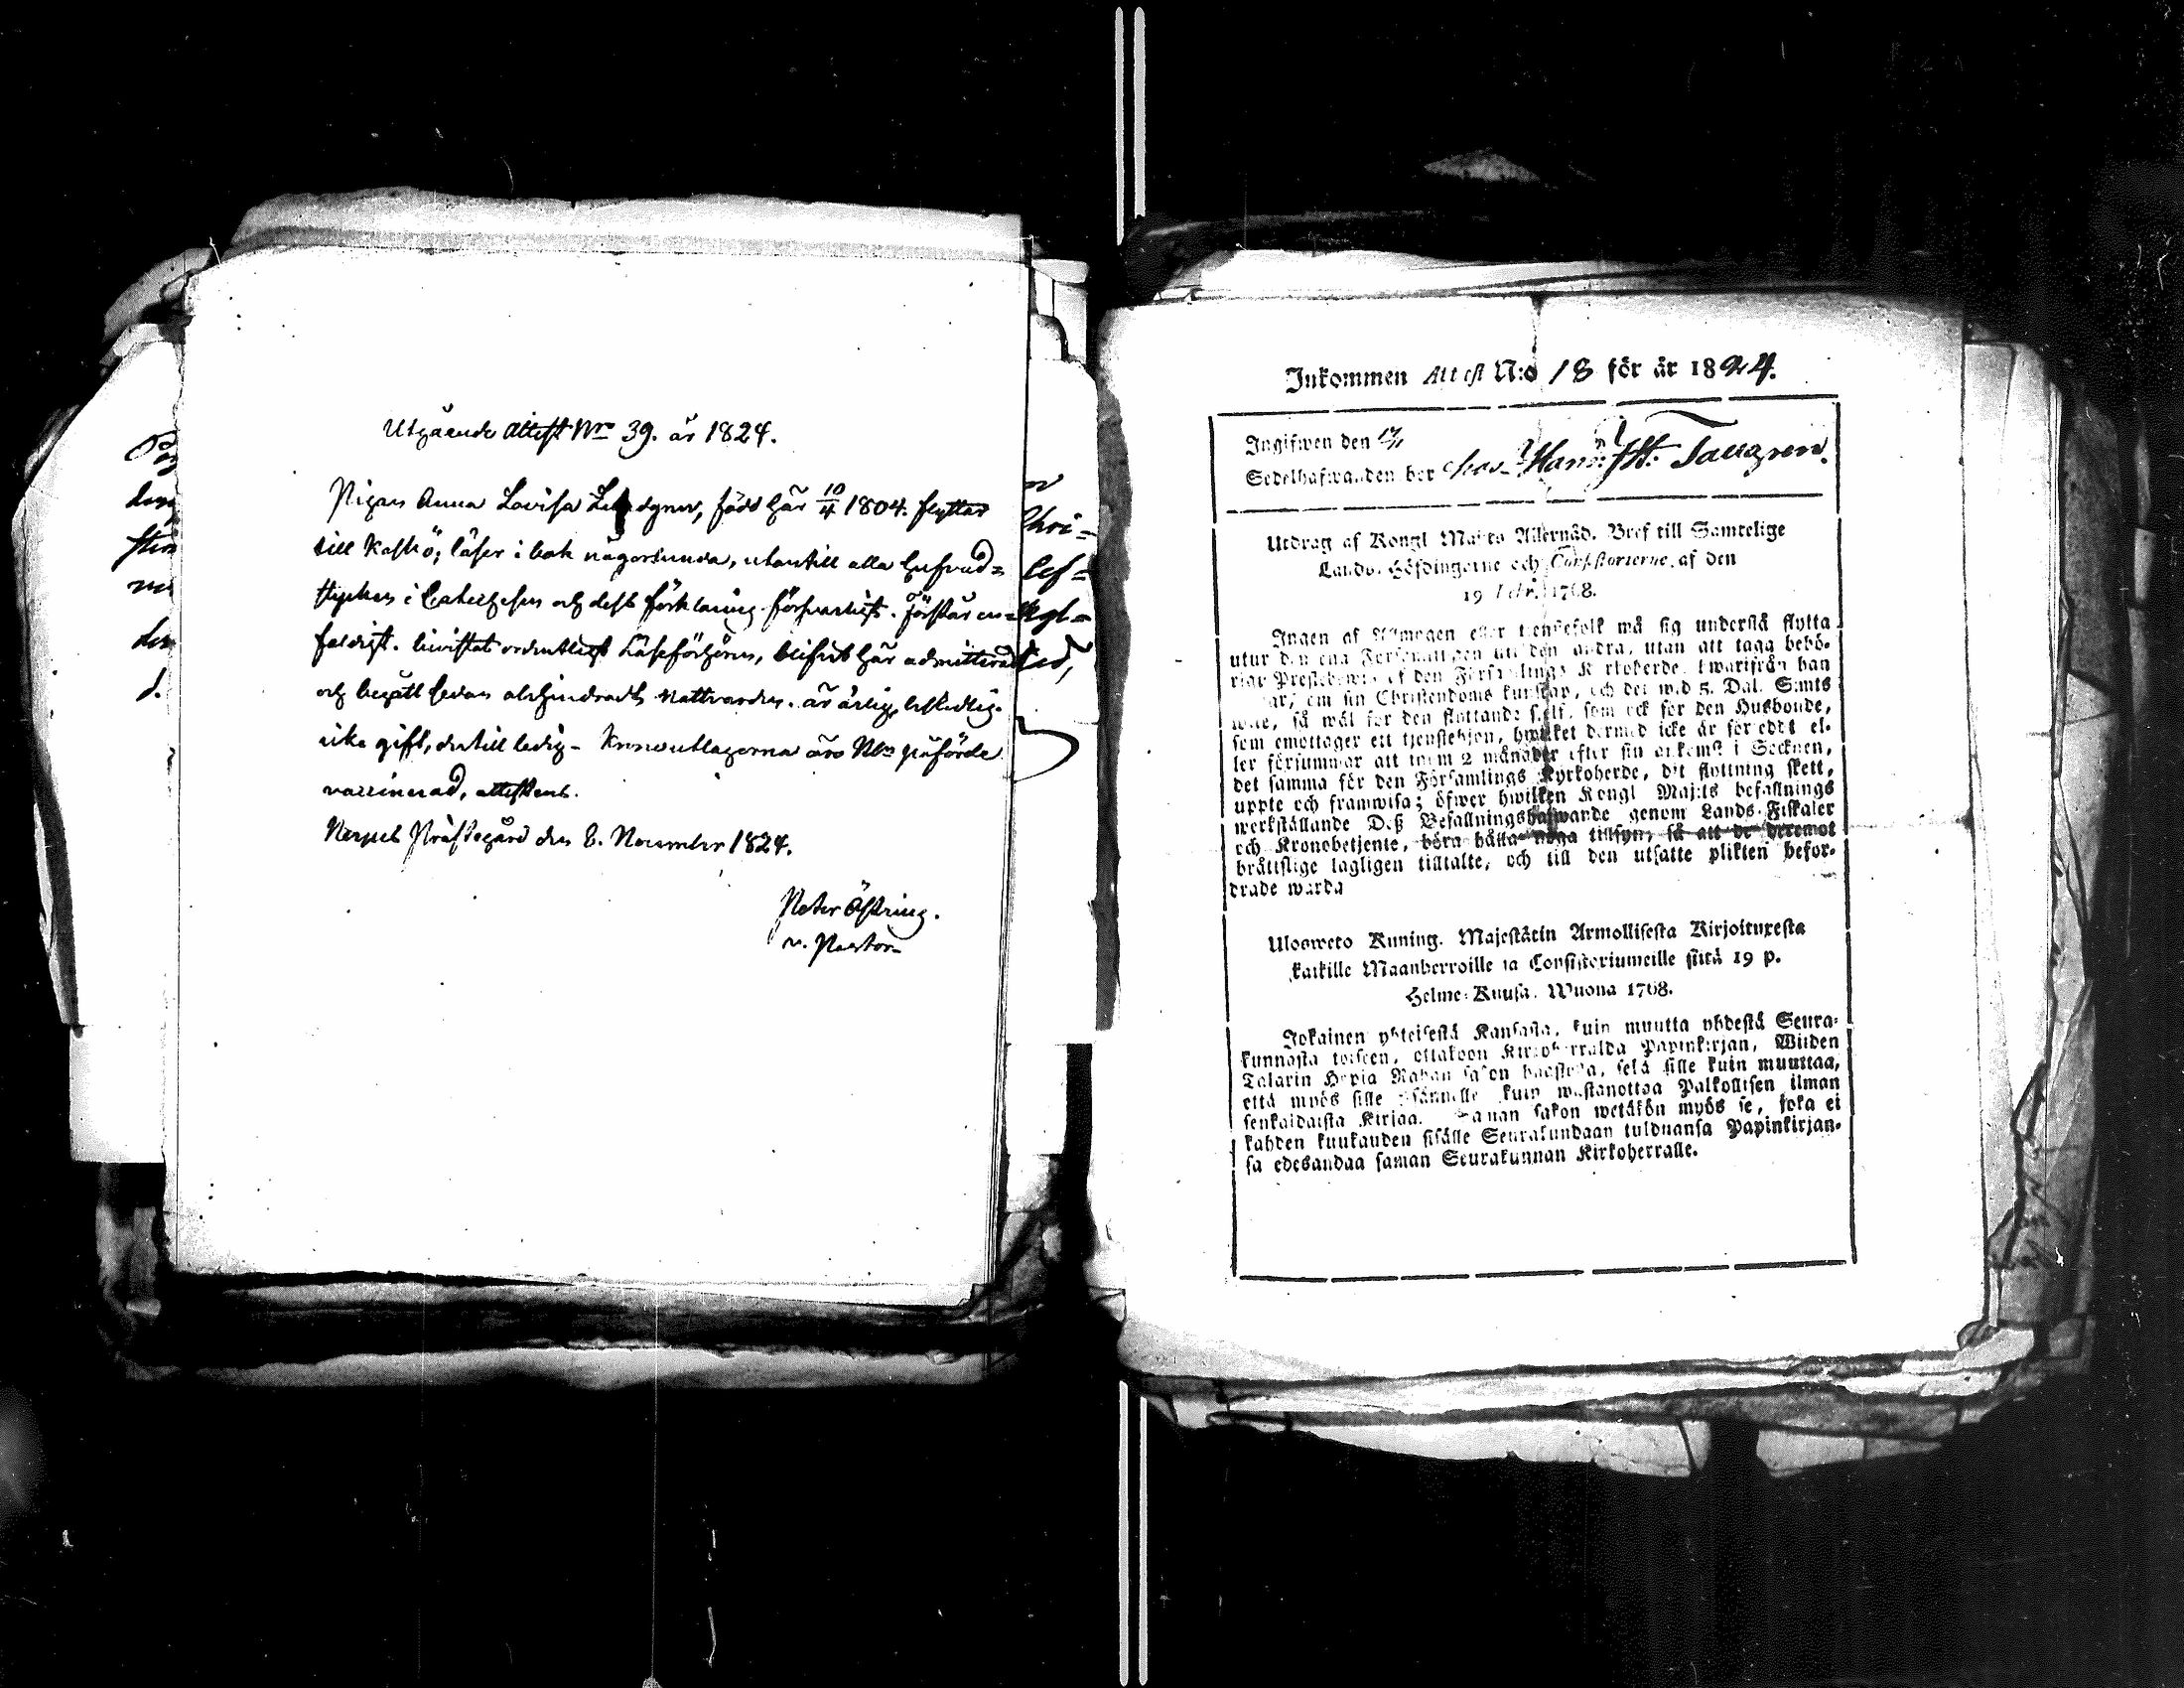 Utgående Attest Nro 39. år 1824.
Pigan Anna Lovisa, född här 10/4 1804. flyttar
till Kaskö; läser i bok någorlunda, utantill alla hufvud=
stycken i Catechesen och dess förklaring försvarligt. Förstår en=
faldigt. bivistat ordentligt Läseförhören, blifvit här admitterad
och begått sedan oförhindradt nattvarden. är ärlig, beskedlig.
icke gift, dertill ledig. Kronoutlagorna äro påförde
vaccinerad, attesteras.
Nerpes Prästegård den 8. November 1824.
Peter Östring.
v. Pastor
den
Chri=
lef=
d.
Inkommen Attest N:o 18 för år 1824.
Ingifwen den
Sedelhafwanden bor hos
Utdrag af Kongl Maj:ts Allernåd. Bref till Samtelige
Lands-Höfdingarne och Consistorierne af den
19 Febr. 1768.
Ingen af Allmogen eller tjenstefolk må sig understå flytta
utur den ena Församlingen uti den andra, utan att taga behö-
rigt Prestebewis af den Församlings Kyrkoherde, hwarifrån han
om sin Christendoms kunskap, och det wid 5. Dal. Smts
wite, så wäl för den flyttande sjelf, som ock för den Husbonde,
som emottager ett tjenstehjon, hwilket dermed icke är försedt el-
ler försummar att inom 2 månader efter sin ankomst i Socknen,
det samma för den Församlings Kyrkoherde, dit flyttning skett,
uppte och framwisa; öfwer hwilken Kongl Maj:ts befallnings
werkställande Deß Befallningshafwande genom Lands-Fiskaler
och Kronobetjente, böra hålla noga tillsyn, så att de deremot
bråtislige lagligen tilltalte, och till den utsatte plikten befor-
drade warda
Ulosweto Kuning. Majestätin Armollisesta Kirjoituxesta
kaikille Maanherroille ja Consistoriumeille siitä 19 p.
Helme-Kuusa. Wuona 1768.
Jokainen yhteisestä Kansasta, kuin muutta yhdestä Seura-
kunnasta toiseen, ottakoon Kirkoherralda Papinkirjan, Wiiden
Talarin Hopia Rahan sakon haastolla, sekä sille kuin muuttaa,
että myös sille isännälle kuin wastanottaa Palkollisen ilman
senkaldaista Kirjaa. Saman sakon wetäkön myös se, joka ei
kahden kuukauden sisälle Seurakundaan tulduansa Papinkirjan-
sa edesandaa saman Seurakunnan Kirkoherralle.